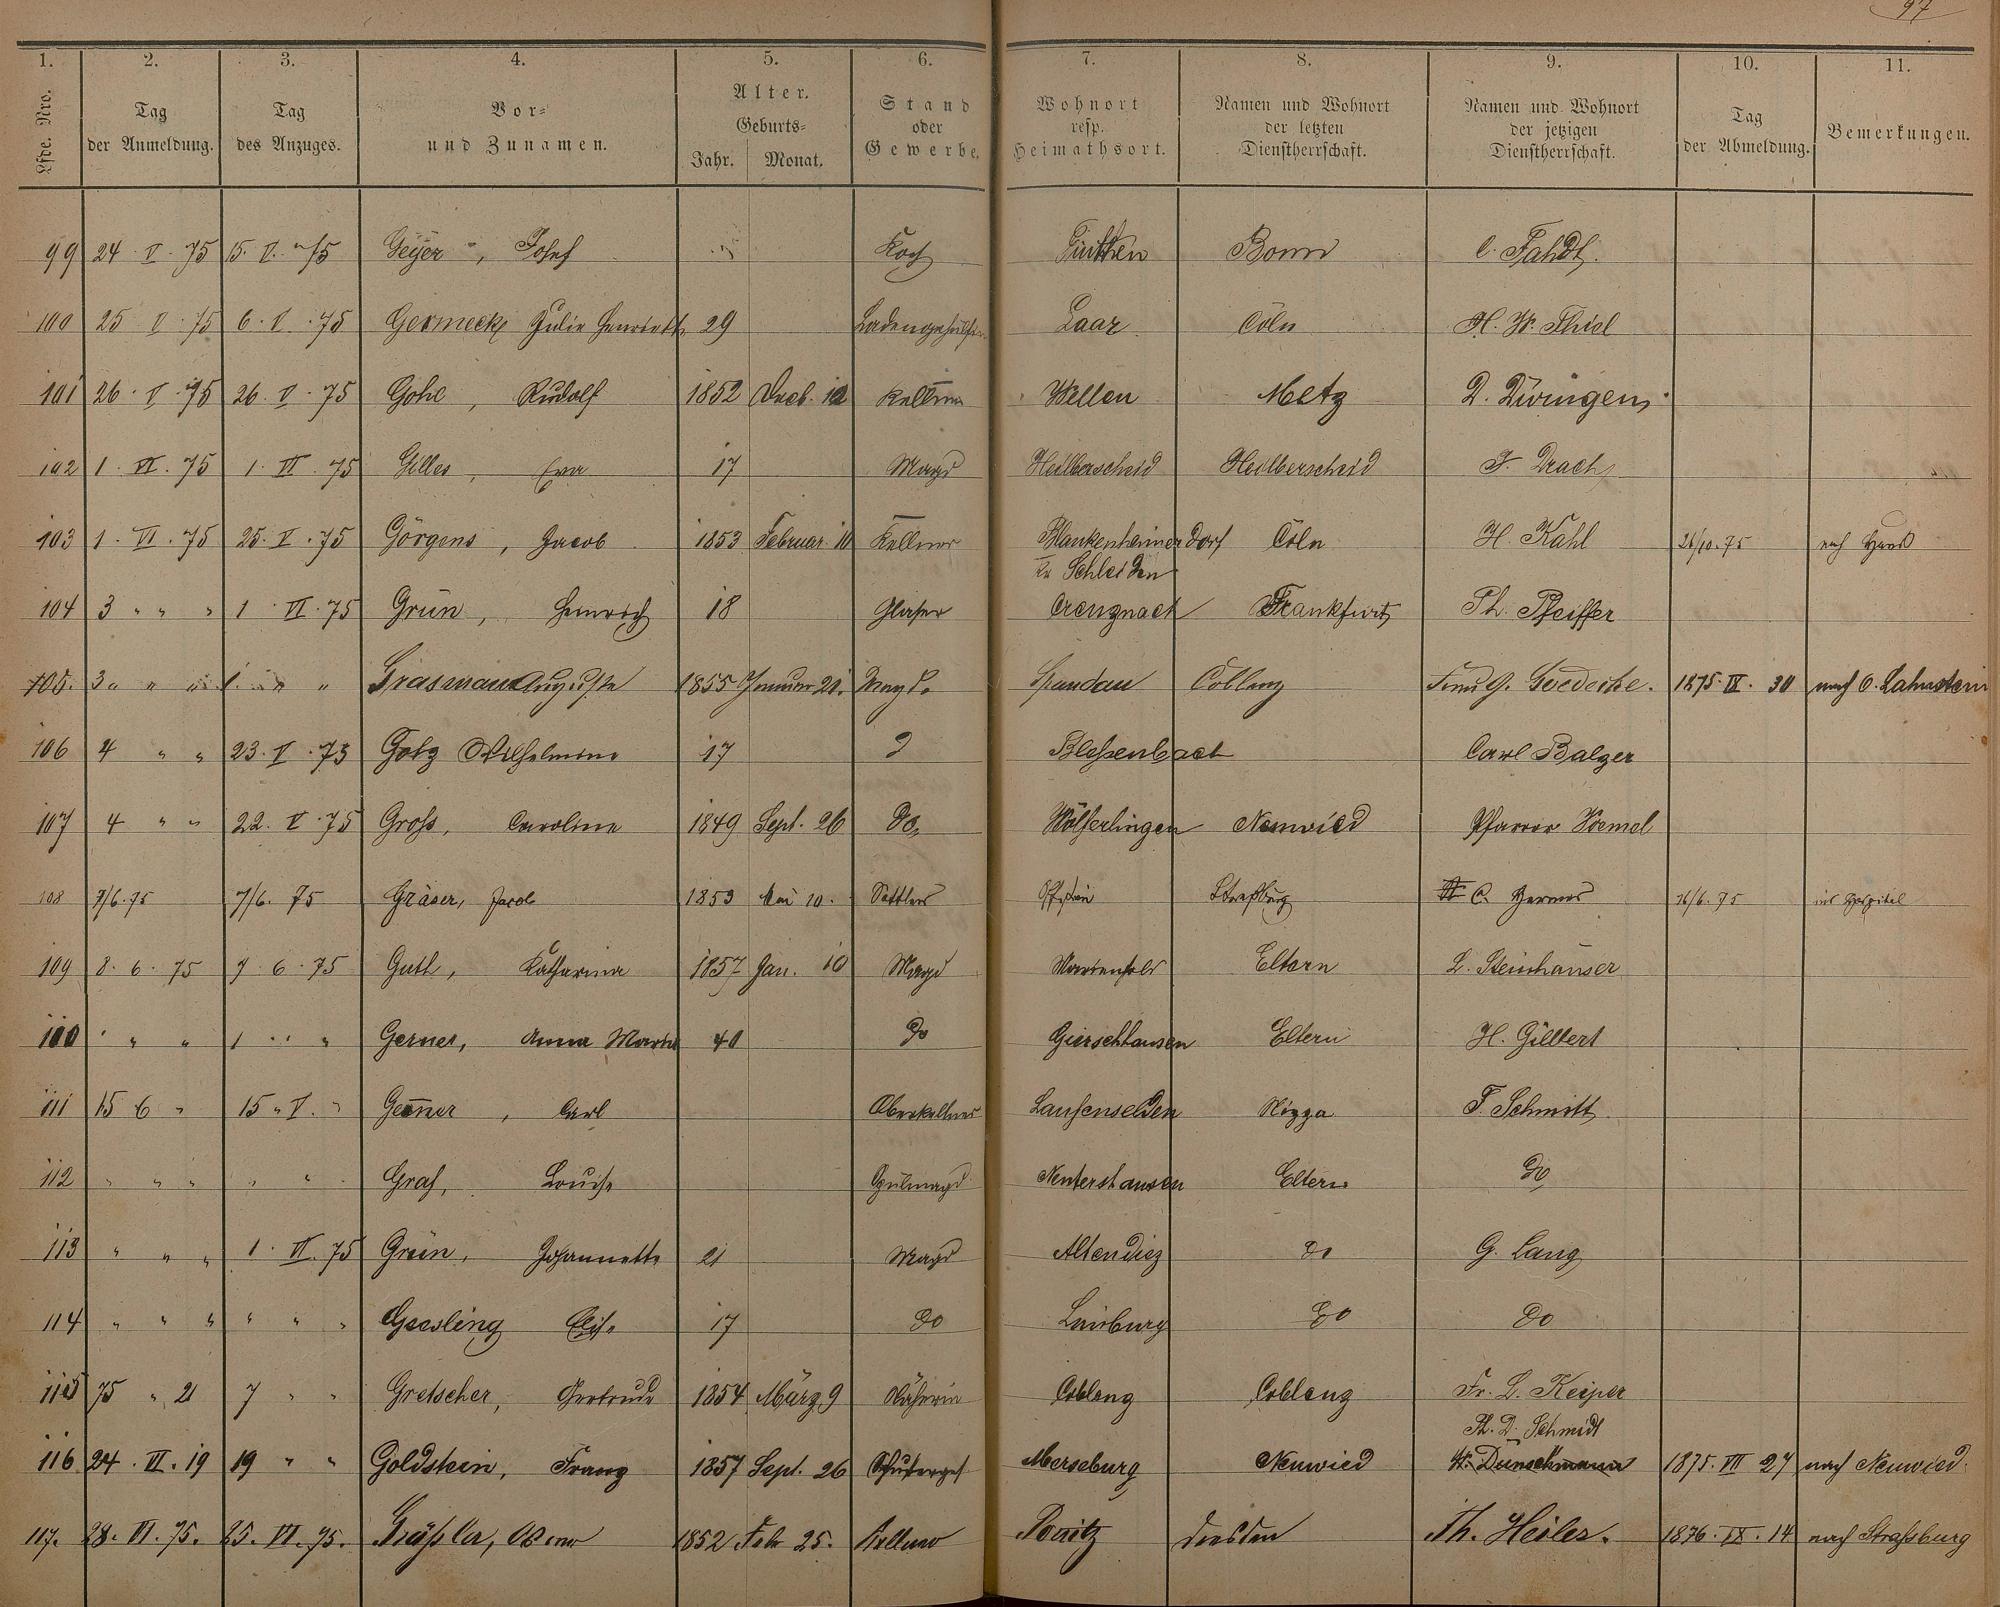 97
1. 2. 3. 4. 5. 6. 7. 8. 9. 10. 11.
Lfde. Nro. Tag der Anmeldung. Tag des Anzuges. Vor- und Zunamen. Alter. Geburts- Jahr. Monat. Stand oder Gewerbe. Wohnort resp. Heimathsort. Namen und Wohnort der letzten Dienstherrschaft. Namen und Wohnort der jetzigen Dienstherrschaft. Tag der Abmeldung. Bemerkungen.
99 24. V. 75 15. V. 75 Geyer, Josef Koch Bonn C. Fahdt.
100 25 V. 75 6. V. 75 Germeck Julie Henriette 29 Ladengehülfin Laar Cöln H. W. Thiel
101 26. V. 75 26. V. 75 Gohl, Rudolf 1852 Decb. 12 Kellner Wellen Metz D. Düringen
102 1. VI. 75 1. VI. 75 Gilles, Eva 17 Magd Heilberscheid Heilberscheid F. Drach
103 1. VI. 75 25. V. 75 Görgens, Jacob 1853 Februar 10 Kellner Blankenheimer Dorf Cöln H. Kahl 26/10. 75 nach Haus
Kr Schleiden
104 3 " " " 1. VI. 75 Grün, Heinrich 18 Glaser Creuznach Frankfurt Ph. Pfeiffer
105. 3 " " " 1. " " Grasmann Auguste 1855 Januar 21. Magd. Spandau Coblenz G. Goedecke. 1875. IX. 30 nach O. Lahnstein
106 4 " " 23. V. 75 Götz Wilhelmine 17 Blessenbach Carl Balzer
107 4 " " 22. V. 75 Gross, Caroline 1849 Sept. 26 Do Wölferlingen Neuwied Pfarrer Vömel
108 7/6. 75 7/6. 75 Gräser, Jacob 1853 Mai 10. Sattler Straßburg C. Hermes 16/6. 75 ins Hospital
109 8. 6. 75 7. 6. 75 Guth, Katharina 1857 Jan. 10 Magd Marienfels Eltern L. Steinhäuser
110 " " " 1 " " Gerner, Anna Maria 40 Do Gierschhausen Eltern H. Gilbert
111 15 6 " 15. V. " Gemmer, Carl Oberkellner Laufenselden Nizza F. Schmitt
112 " " " " " Graf, Louise Spülmagd Nentershausen Eltern Do
113 " " " 1. VI. 75 Grün, Johannette 21 Magd Altendiez Do G. Lang
114 " " " " " " Goesling Elise 17 Do Limburg Do Do
115 75 " 21 7 " " Gretscher, Gertrude 1854 März 9 Näherin Coblenz Coblenz Fr. L. Keiper
Ph. D. Schmidt
116 24. VI. 19 19 " " Goldstein, Franz 1857 Sept. 26 Schusterges Merseburg Neuwied W. Dünschmann 1875. VIII 27 nach Neuwied.
117. 28. VI. 75. 25. VI. 75. Gräßler, 1852 Febr 25. Kellner Ponitz Dresden Th. Heiler. 1876. IX. 14 nach Straßburg